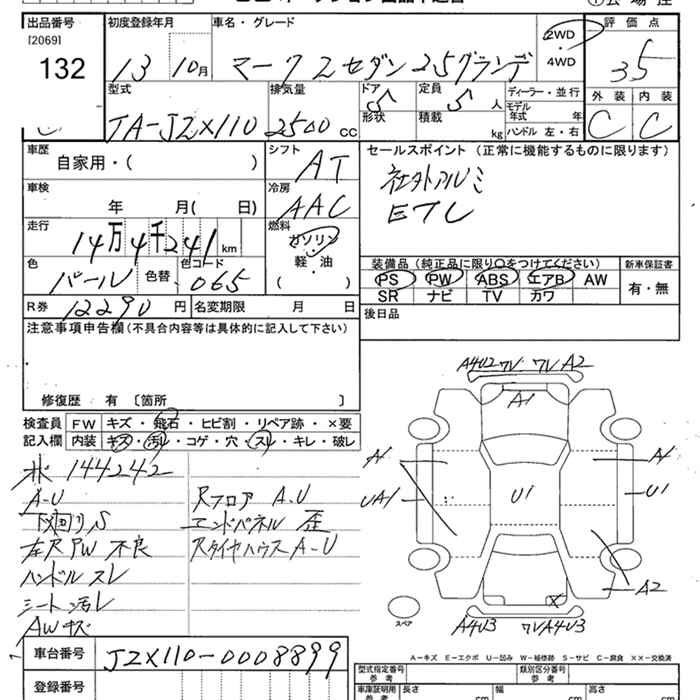 出品番号 初度登録年月 車名・グレード 2WD 評価点
[2069]
132 13 10月 マーク2セダン 2.5グランデ ・4WD 3.5
型式 排気量 ドア 定員 ディーラー・並行 外装 内装
JA-JZX110 2500 CC 5 5人 モデル年式 年
形状 積載 kg ハンドル 左・右 C C
車歴 シフト セールスポイント (正常に機能するものに限ります)
自家用・( ) AT 社外アルミ
車検 冷房
年 月( 日) AAC ETC
走行 燃料
14万4千241km ガソリン
軽・油
( )
色 色替 色コード 装備品 (純正品に限り○をつけてください) 新車保証書
パール 065 PS PW ABS エアB AW 有・無
SR ナビ TV カワ
R券 12290円 名変期限 月 日 後日品
注意事項申告欄(不具合内容等は具体的に記入して下さい)
修復歴 有 [箇所 ]
検査員 FW キズ・飛石・ヒビ割・リペア跡・×要
記入欄 内装 キズ・汚れ・コゲ・穴・スレ・キレ・破レ
144242
A-U Rフロア A.U
下回りS エンドパネル 歪
左R PW 不良 Rタイヤハウス A-U
ハンドル スレ
シート汚レ
AWキズ
A4U2 ワレ ワレ A2
A1
A1 A1
UA1 U1 U1
A2
X
スペア
A4U3 ワレA4U3
A-キズ E-エクボ U-凹み W-補修跡 S-サビ C-腐食 XX-交換済
車台番号 JZX110-0008899 型式指定番号 参考 類別区分番号 参考
登録番号 車庫証明用 参考 長さ cm 幅 cm 高さ cm